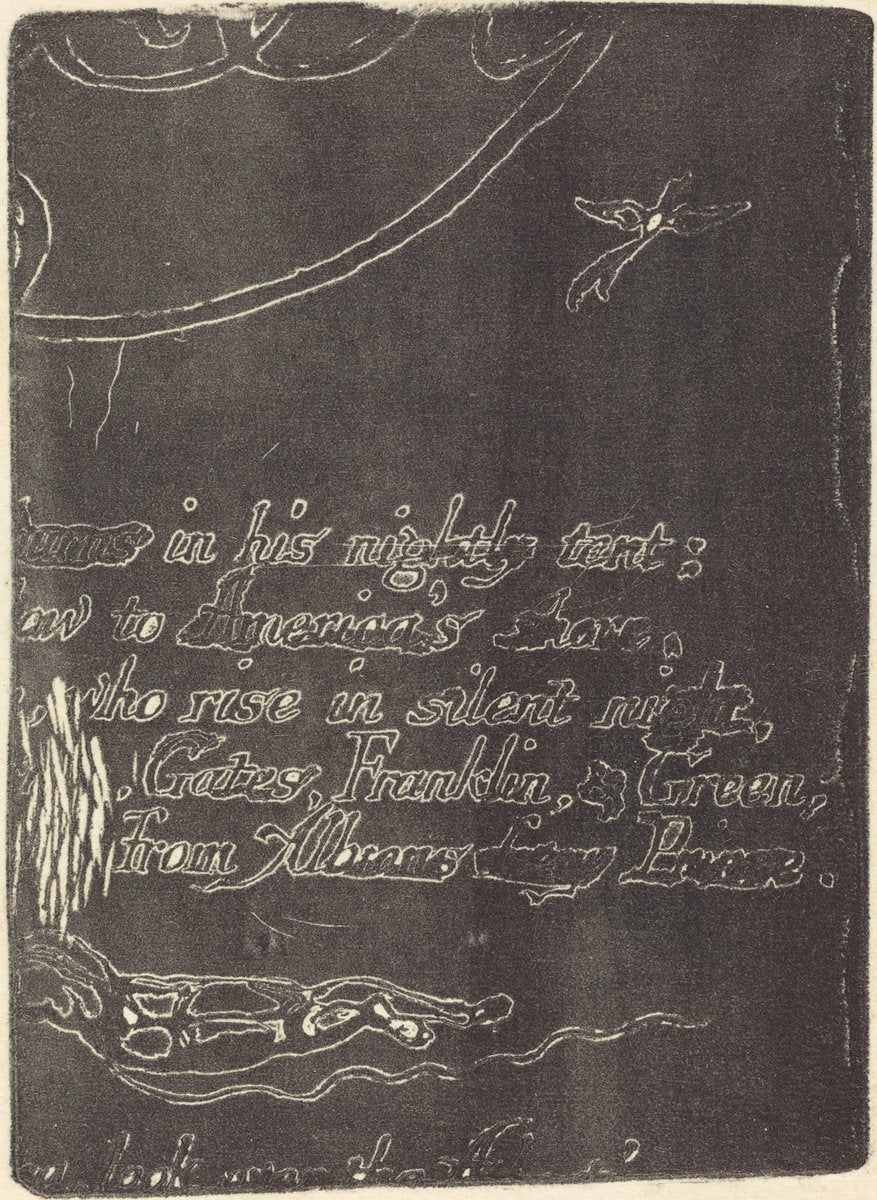 burns in his nightly tent;
low to America's shore,
, who rise in silent night,
, Gates, Franklin, & Green,
from Albions fiery Prince.
look over the